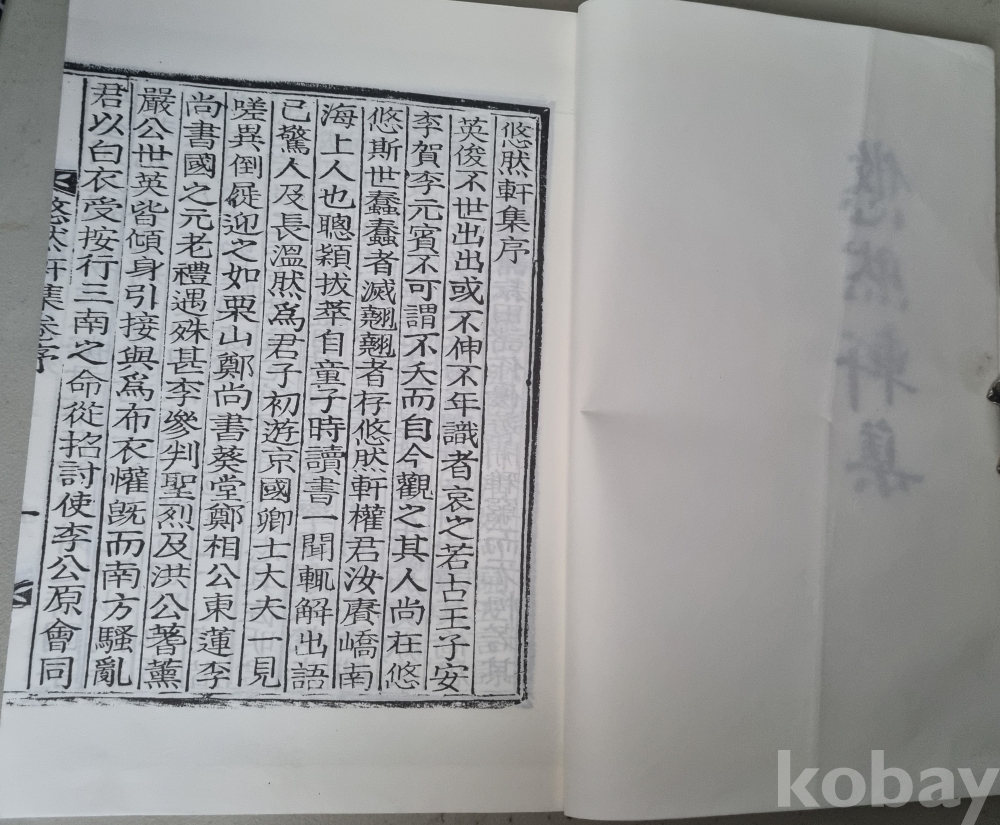 悠然軒集
悠然軒集序
英俊不世出出或不伸不年識者哀之若古王子安
李賀李元賓不可謂不夭而自今觀之其人尚在悠
悠斯世蠢蠢者滅翹翹者存悠然軒權君汝賡嶠南
海上人也聰穎拔萃自童子時讀書一聞輒解出語
已驚人及長溫然爲君子初遊京國卿士大夫一見
嗟異倒屣迎之如栗山鄭尚書葵堂鄭相公東蓮李
尚書國之元老禮遇殊甚李參判聖烈及洪公蓍薰
嚴公世英皆傾身引接與爲布衣懽旣而南方騷亂
君以白衣受按行三南之命從招討使李公原會同
悠然軒集卷序
一
kobay